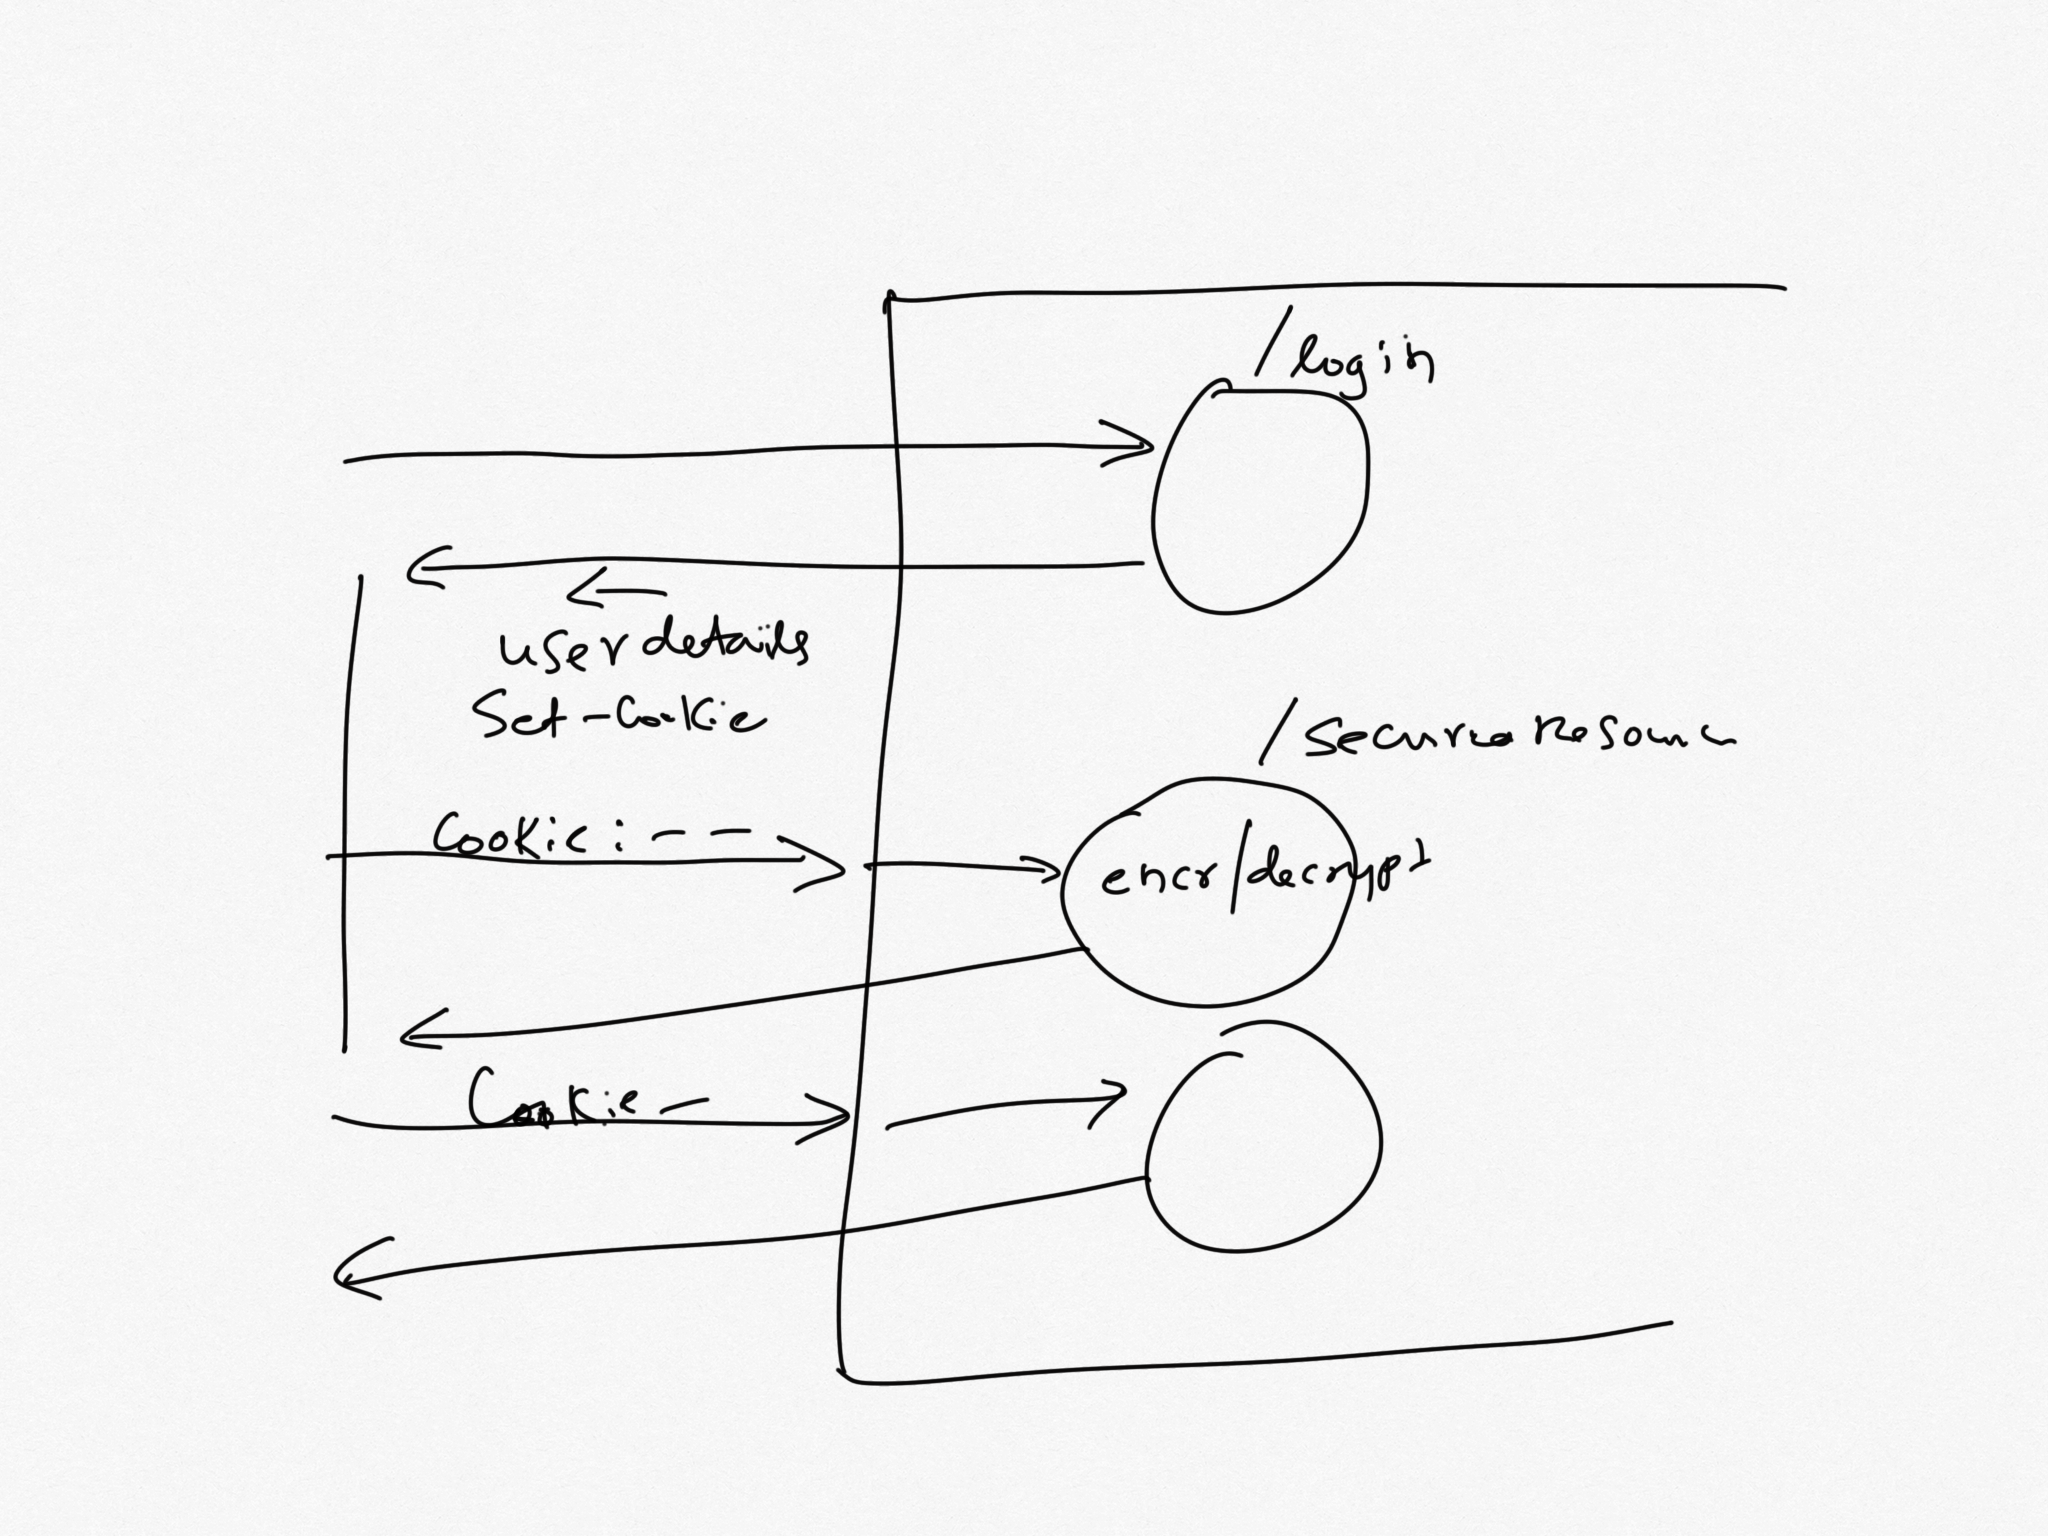 /login
userdetails
Set-Cookie
/secure
Cookie: - -
encr/decrypt
Cookie -